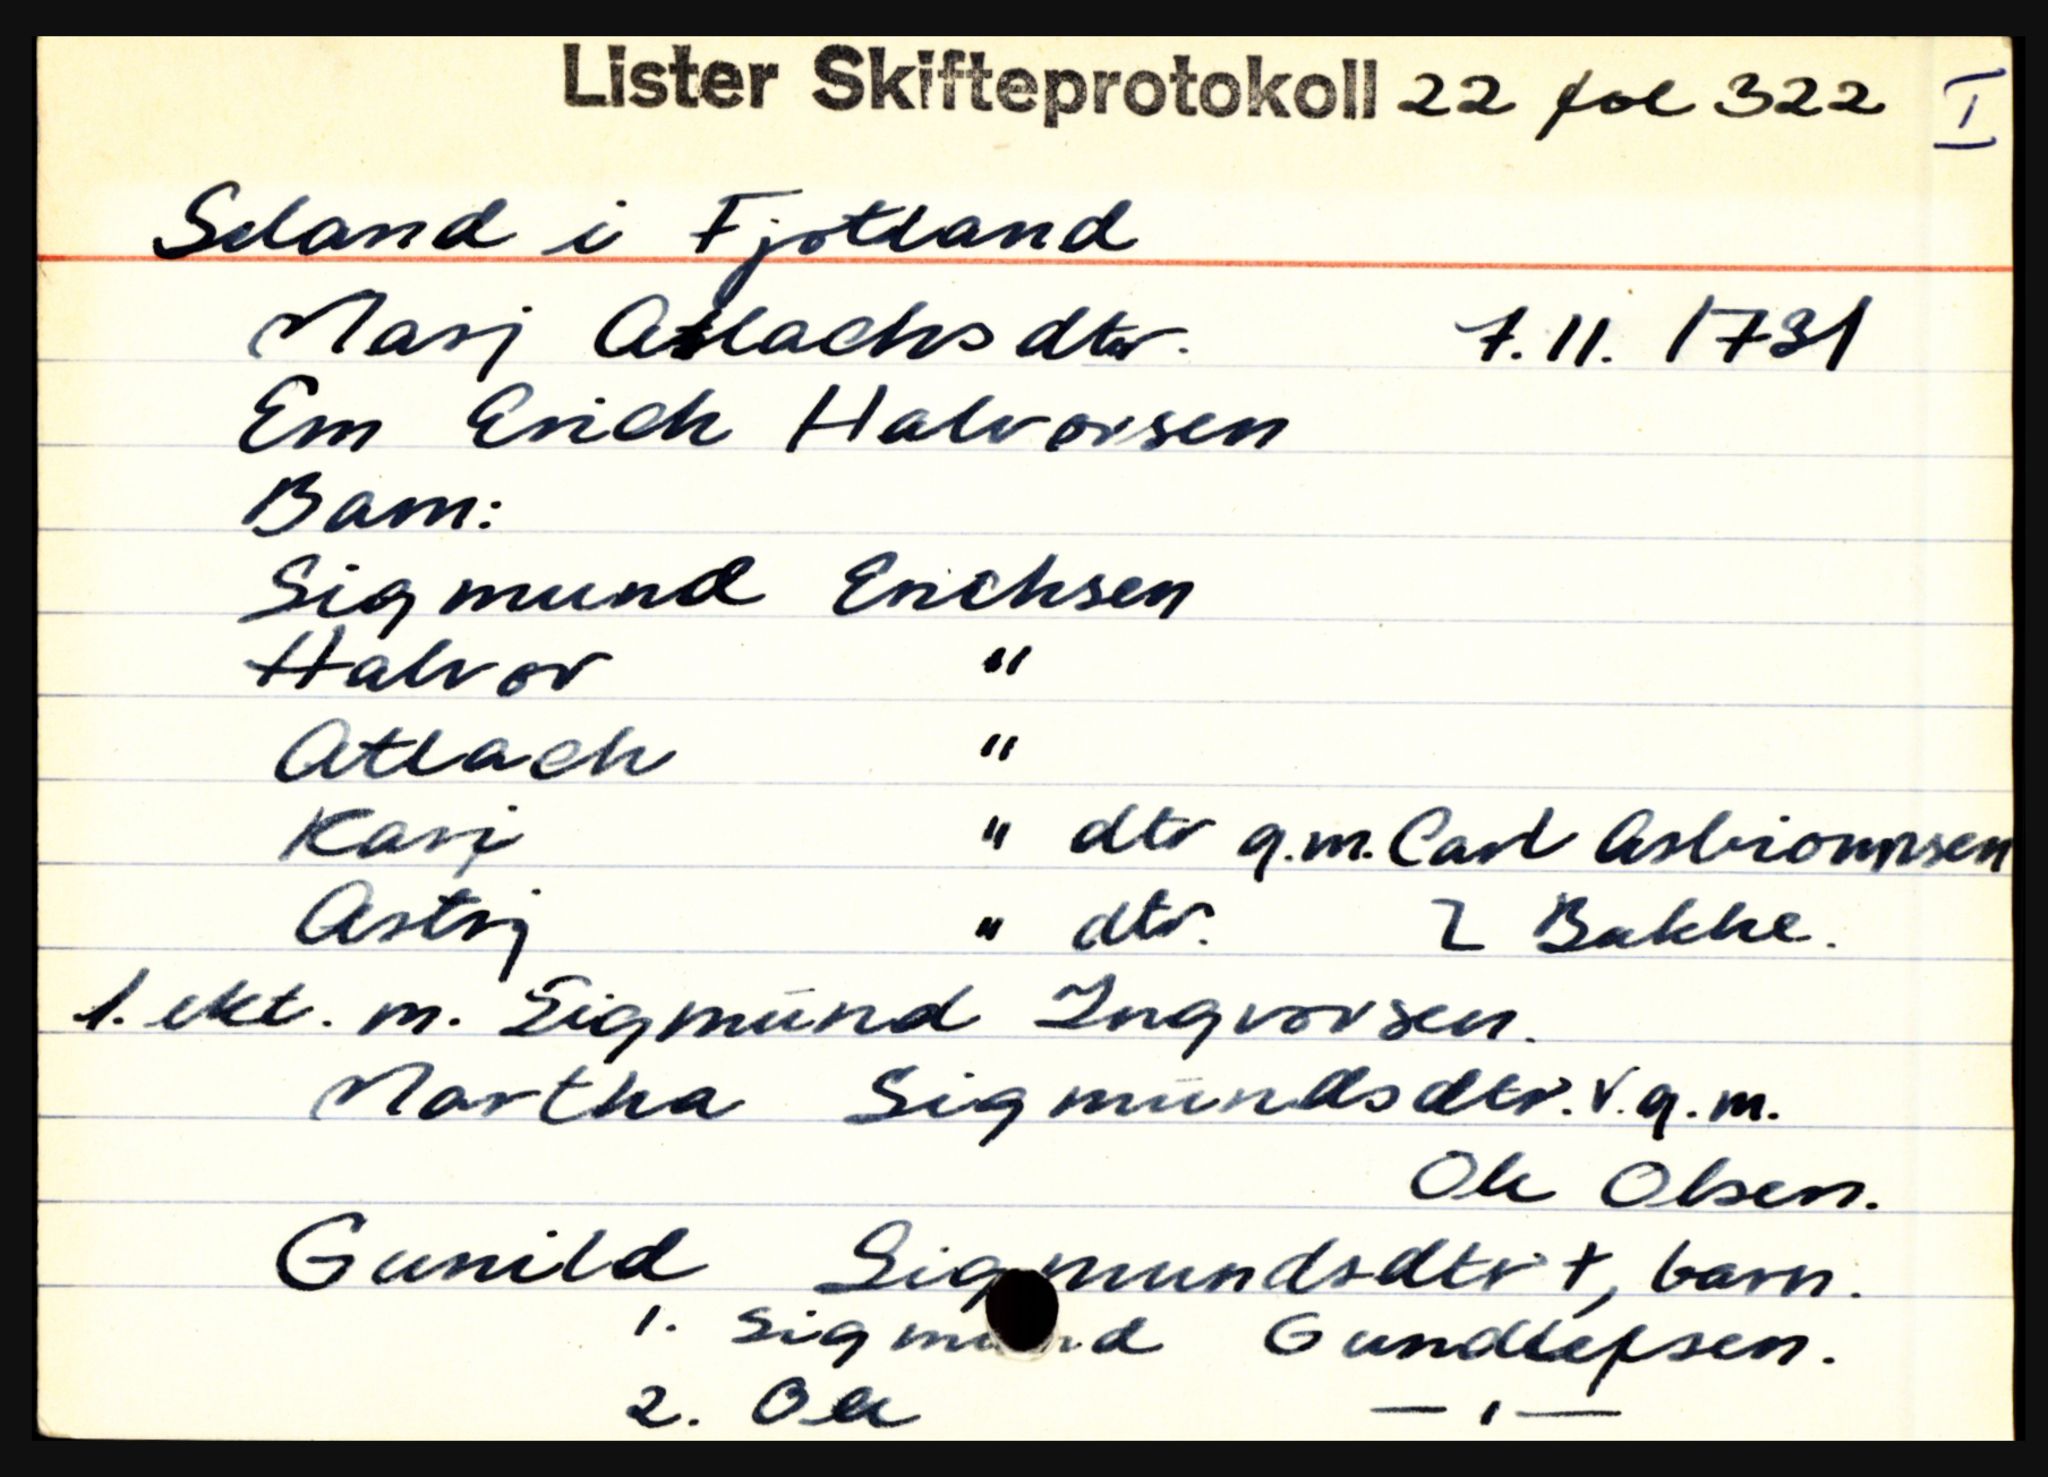 Lister Skifteprotokoll 22 fol 322 I
Seland i Fjotland
Marj Atlachsdtr. 7.11. 1731
Em Erich Halvorsen
Barn:
Sigmund Erichsen
Halvor "
Atlach "
Karj " dtr g.m. Carl Asbiornnsen
Astrj " dtr. Z Bakke.
1. ekt. m. Sigmund Ingvorsen.
Martha Sigmundsdtr. v. g. m.
Ole Olsen.
Gunild Sigmundsdtr †, barn.
1. Sigmund Gundlefsen.
2. Ole — " —